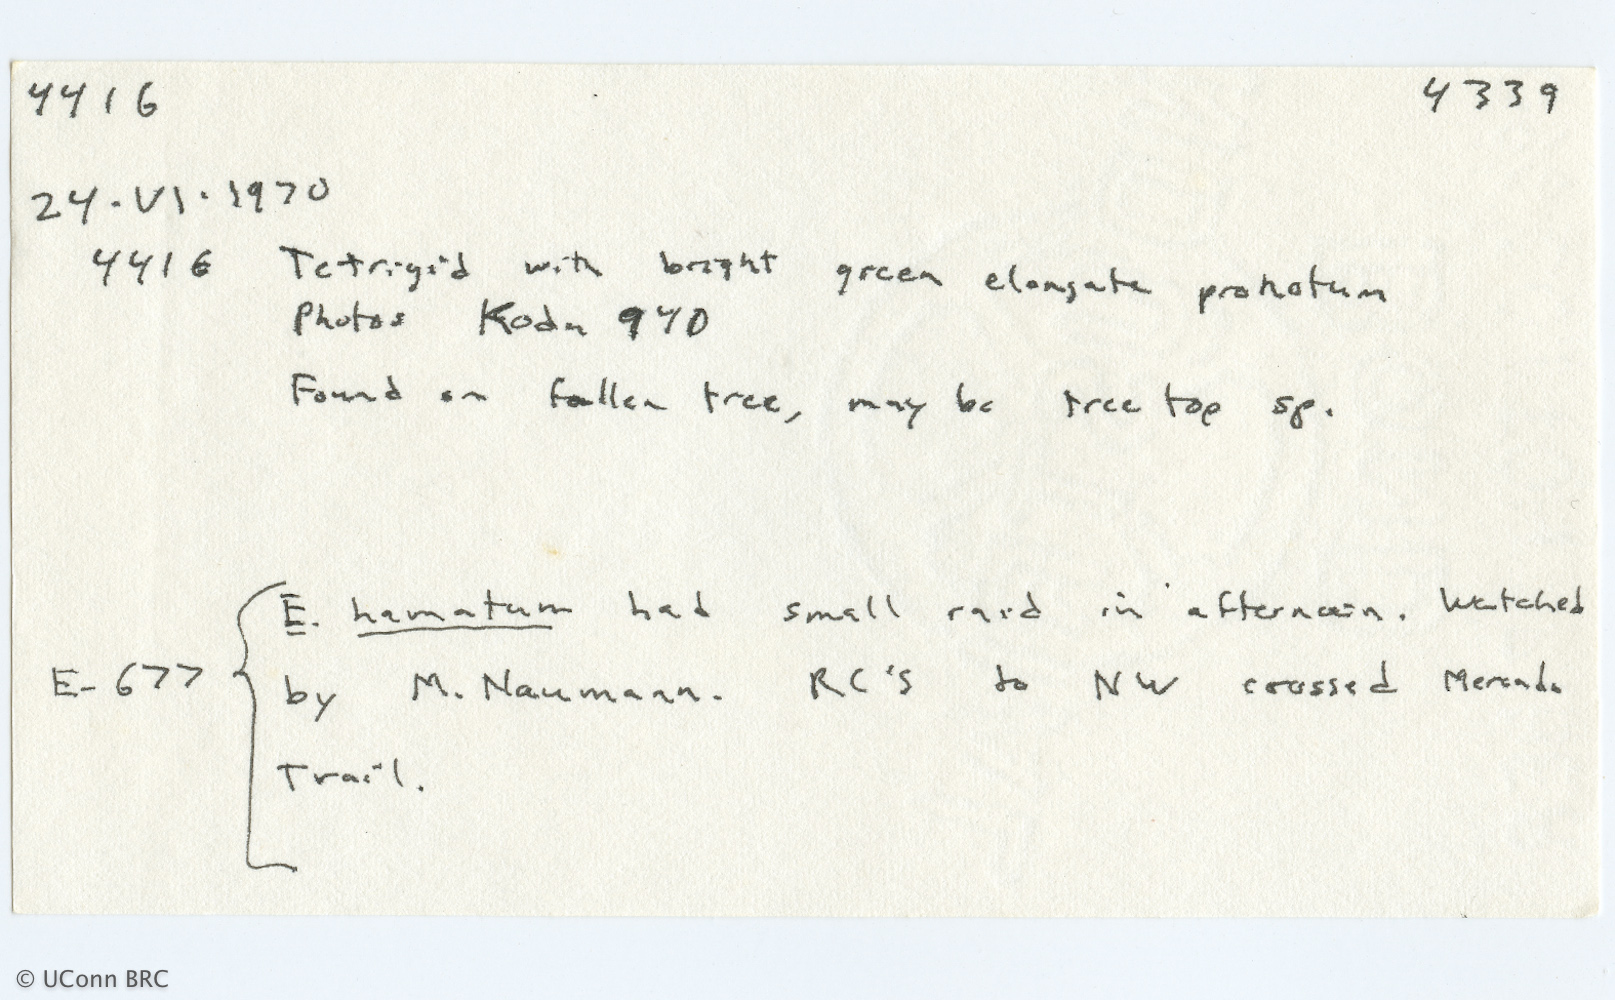 4416 4339
24.VI.1970
4416 Tetrigid with bright green elongate pronotum
Photos Koda 940
Found on fallen tree, may be tree top sp.
E. hamatum had small raid in afternoon. Watched
E-677 by M. Naumann. RC's to NW crossed Mercado
Trail.
© UConn BRC